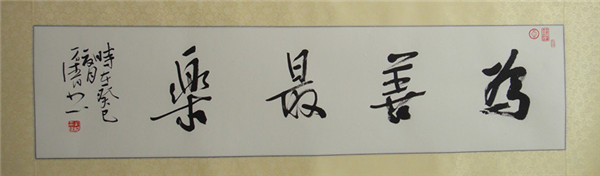 為善最樂
時在癸巳